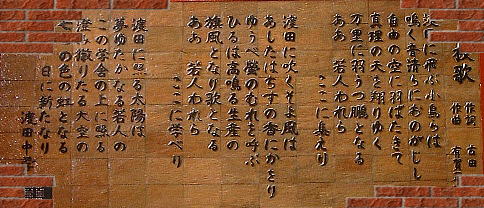 校歌
作詞 古田
作曲 有賀
に飛ぶ小鳥らは
鳴く音清らにおのがじし
自由の空に羽ばたきて
真理の天を翔りゆく
万里に羽うつ鵬となる
ああ 若人われら
ここに集えり
濱田に吹くそよ風は
あしたはちすの香にかをり
ゆうべ螢のむれを呼ぶ
ひるは高鳴る生産の
旗風となり歌となる
ああ 若人われら
ここに学べり
濱田に照る太陽は
夢ゆたかなる若人の
この学舎の上に照る
澄み徹りたる大空の
七つの色の虹となる
日に新たなり
濱田中学